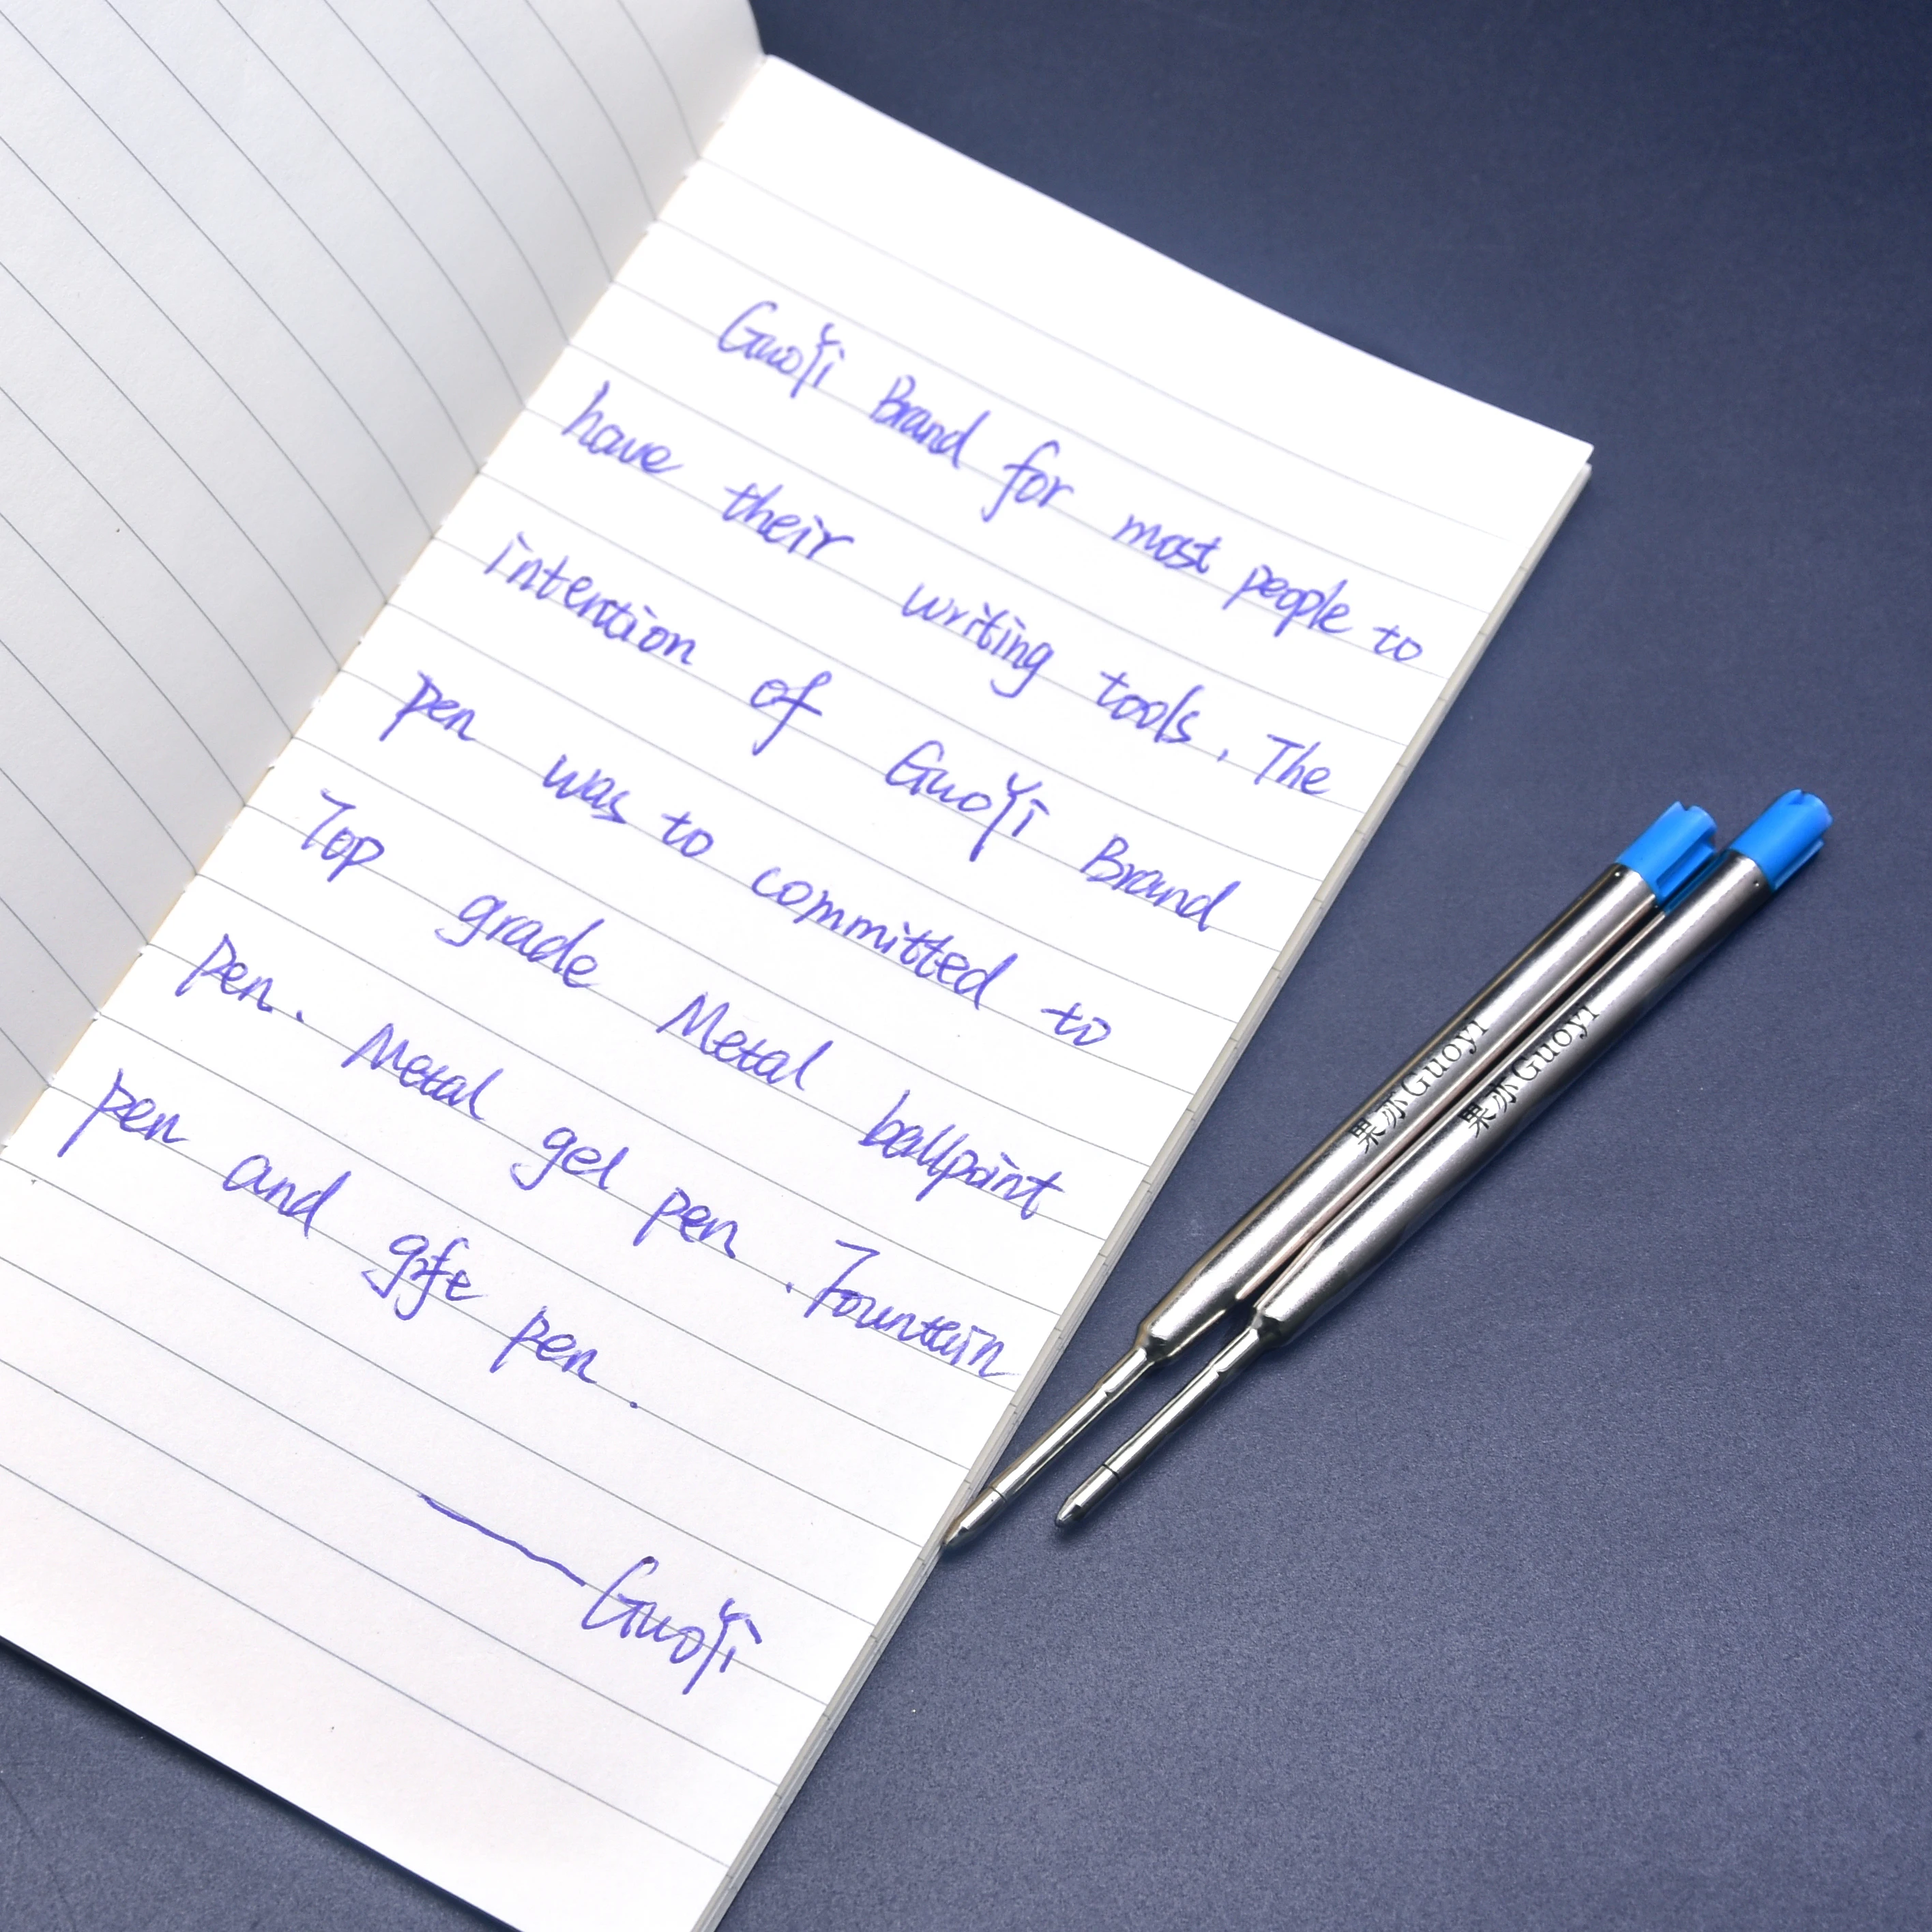 GuoYi Brand for most people to
have their writing tools. The
intention of GuoYi Brand
pen was to committed to
Top grade Metal ballpoint
pen. Metal gel pen. Fountain
pen and gife pen.
—GuoYi
果沂Guoyi
果沂Guoyi